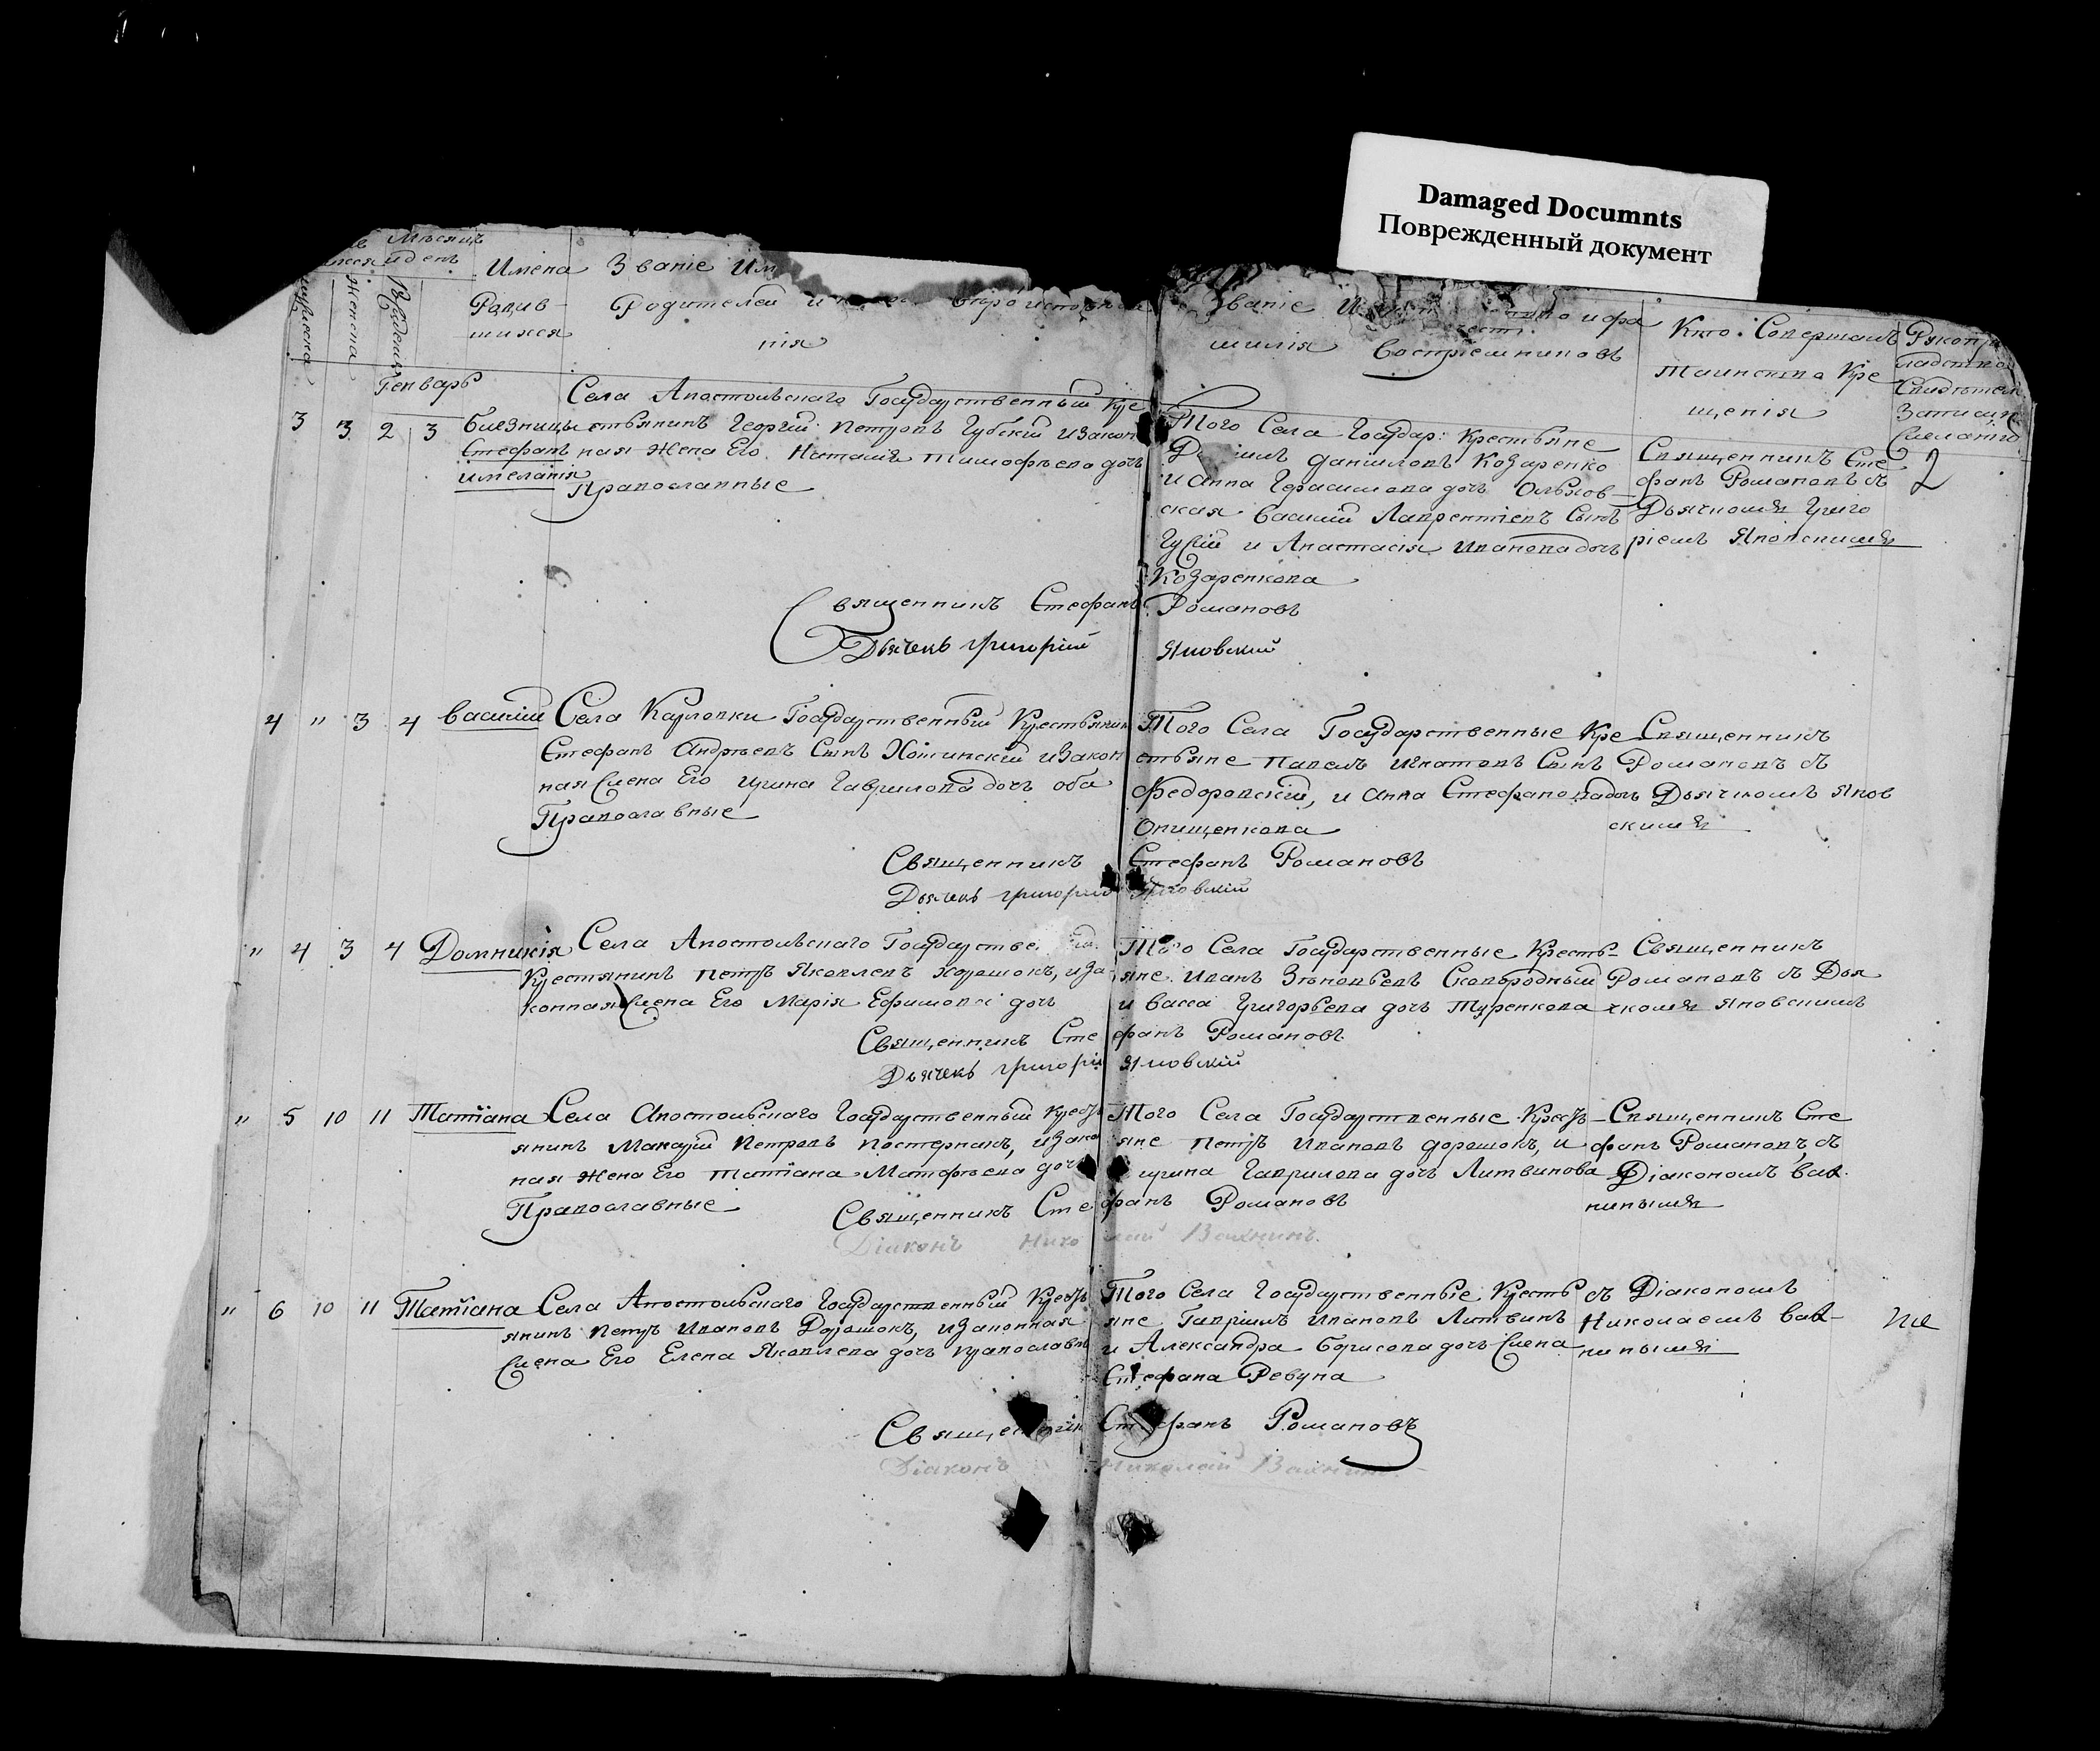 Damaged Documnts
Поврежденный документ
Мѣсяцъ
и день
Имена
Званіе Им
Родив-
шихся
Родителей и
нія
Званіе
и фа
милія
Воспріемниковъ
Кто Совершалъ
Таинство Кре
щенія
Рукопри
кладство
Свидѣтелей
Записи
Генварь
3 3 2 3
близницы
Стефанъ
и меланія
Села Апостольскаго Государственный Кре
стьянинъ Георгій Петровъ Губскій и Закон
ная Жена Его Наталія Тимофѣева дочь
Православные
Того Села Государ: Крестьяне
Даніиловъ Козаренко
и Анна Герасимова дочь Ольхов-
ская Василій Лаврентіевъ Сынъ
Губкій и Анастасія Иванова дочь
Козаренкова
Священникъ Сте
фанъ Романовъ съ
Дьячкомъ Григо
ріемъ Яновскимъ
2
Священникъ Стефанъ Романовъ
Дьячекъ Григорій Яновскій
4 " 3 4
Василій
Села Карловки Государственный Крестьянин
Стефанъ Андреевъ Сынъ Хотинскій и Закон
ная Жена Его Ирина Гаврилова дочь оба
Православные
Того Села Государственные Кре
стьяне Павелъ Игнатовъ Сынъ
Федоровскій, и Анна Стефанова дочь
Онищенкова
Священникъ
Романовъ съ
Дьячкомъ Янов
скимъ
Священникъ Стефанъ Романовъ
Дьячекъ Григорій Яновскій
" 4 3 4
Домникія
Села Апостольскаго Государстве
Крестянинъ Петръ Яковлевъ Хорошокъ, и За
конная Жена Его Марія Ефимова дочь
Того Села Государственные Кресть-
яне Иванъ Зѣновьевъ Сковородный
и Васса Григорьева дочь Туренкова
Священникъ
Романовъ съ Дья
чкомъ Яновскимъ
Священникъ Стефанъ Романовъ
Дьячекъ Григорій Яновскій
" 5 10 11
Татіана
Села Апостольскаго Государственный Кресть
янинъ Макарій Петровъ Постернакъ, и Закон
ная Жена Его Татіана Матфѣева дочь
Православные
Того Села Государственные Кресть-
яне Петръ Ивановъ Дорошокъ, и
Ирина Гаврилова дочь Литвинова
Священникъ Сте
фанъ Романовъ, съ
Діакономъ Вах
нинымъ
Священникъ Стефанъ Романовъ
Діаконъ Николай Вахнинъ.
" 6 10 11
Татіана
Села Апостольскаго Государственный Кресть
янинъ Петръ Ивановъ Дорошокъ, и Законная
Жена Его Елена Яковлева дочь Православн
Того Села Государственные Кресть
яне Гавріилъ Ивановъ Литвинъ
и Александра Борисова дочь Жена
Стефана Ревуна
съ Діакономъ
Николаемъ Вах-
нинымъ
Священник Стефанъ Романовъ
Діаконъ Николай Вахнинъ